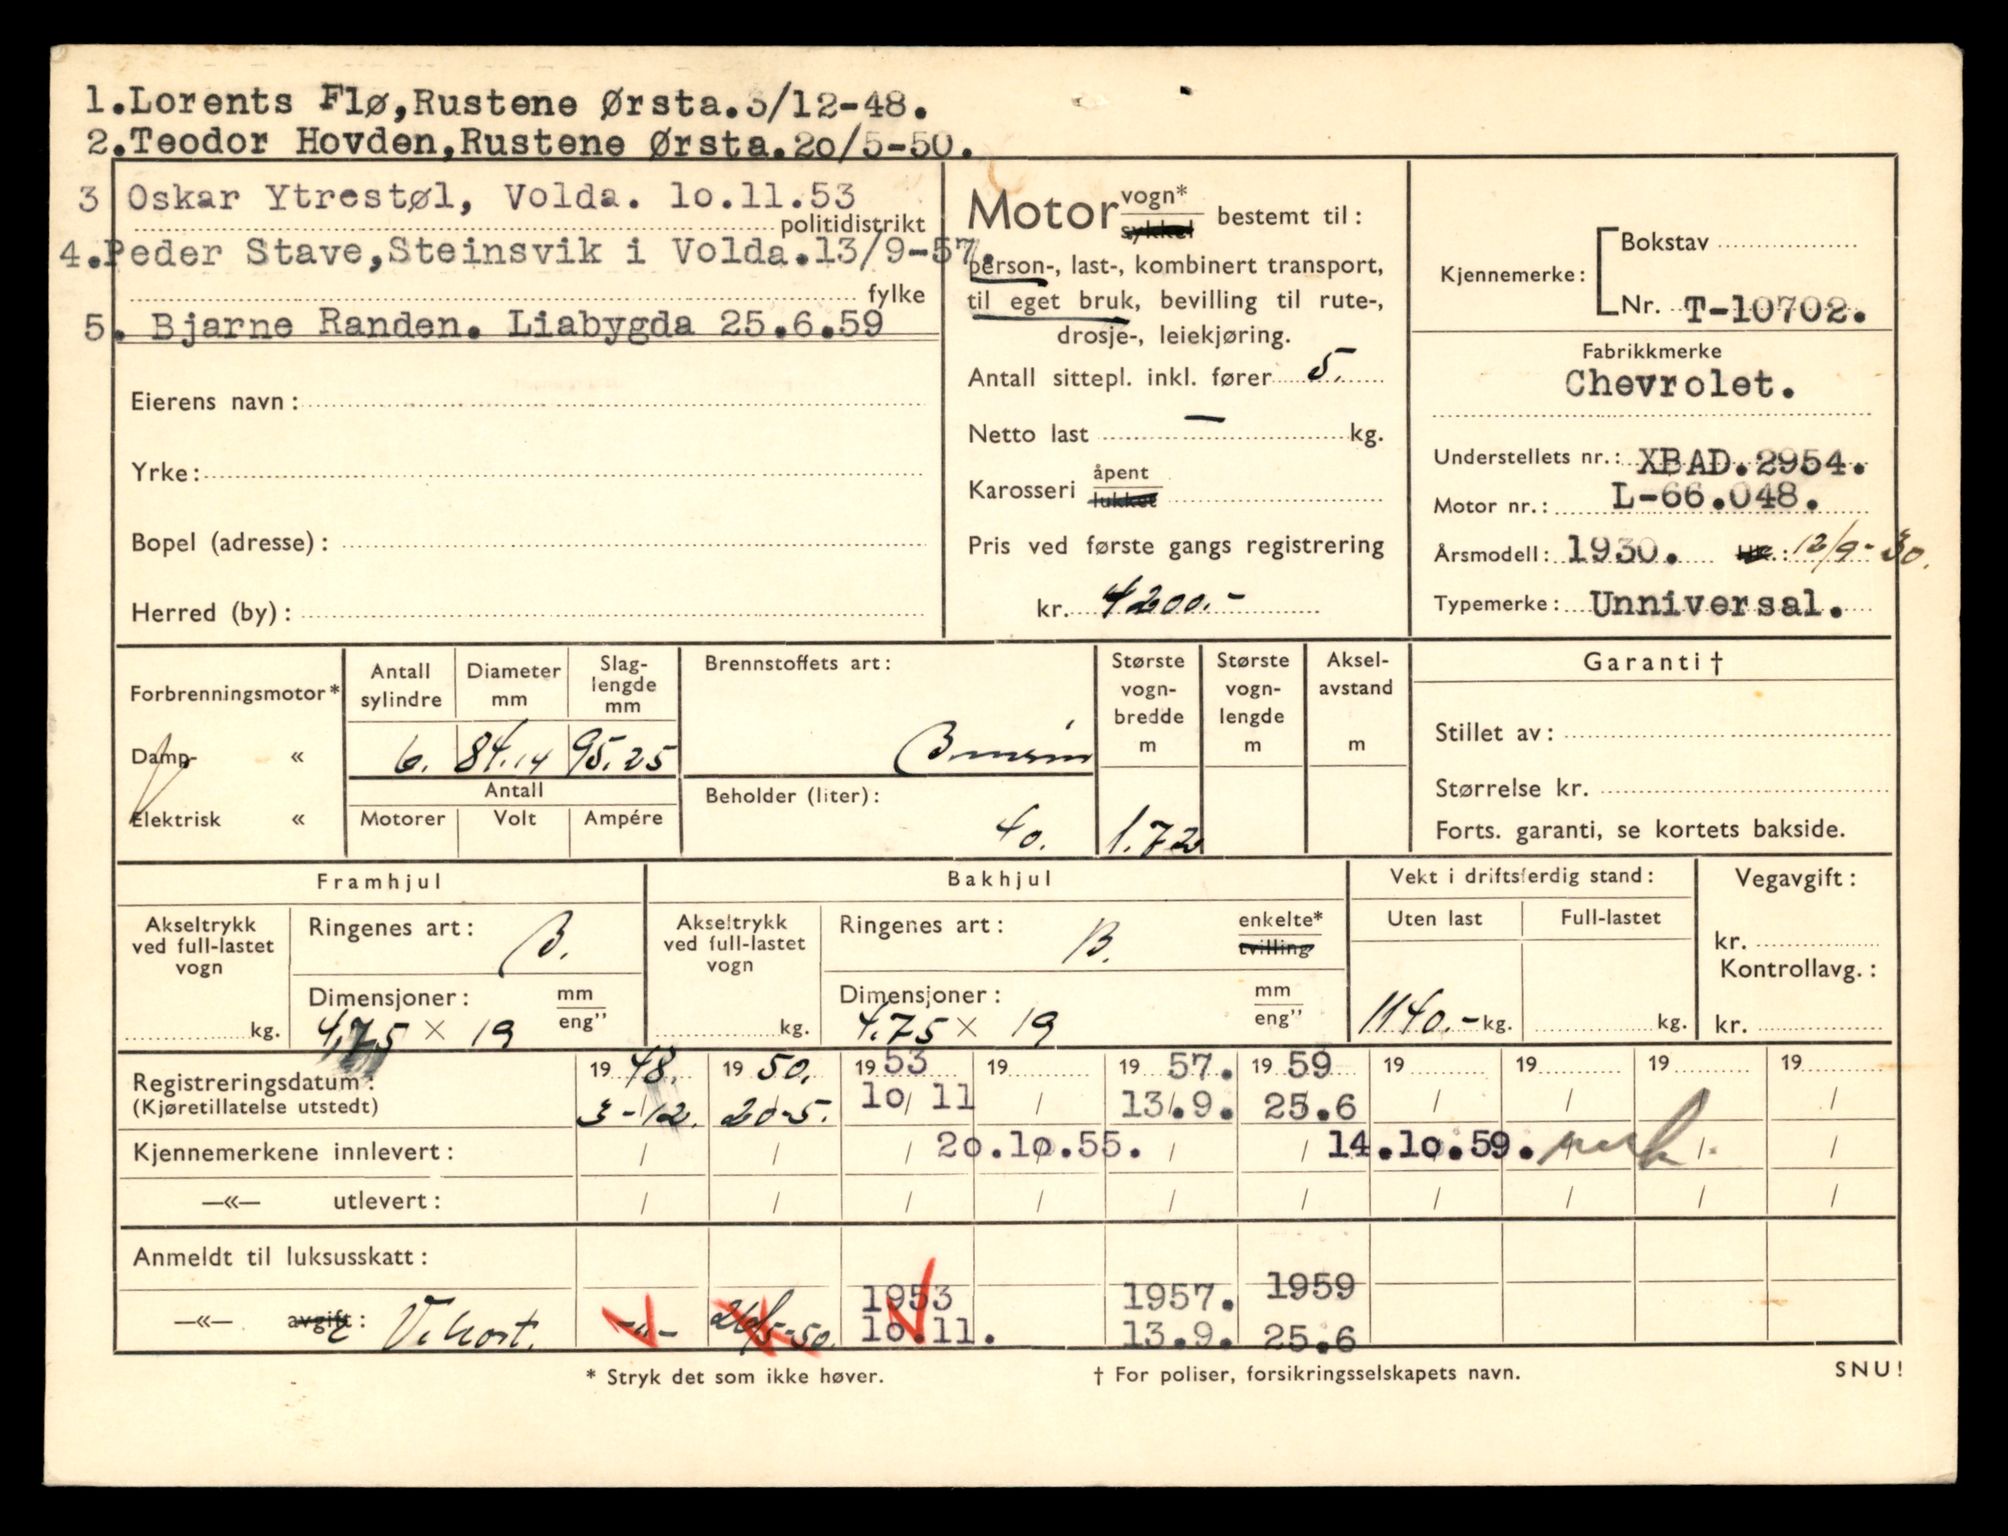 1.Lorents Flø,Rustene Ørsta.3/12-48.
2.Teodor Hovden,Rustene Ørsta.20/5-50.
3 Oskar Ytrestøl, Volda. 10.11.53
politidistrikt
4.Peder Stave,Steinsvik i Volda.13/9-57.
fylke
5. Bjarne Randen. Liabygda 25.6.59
Eierens navn:
Yrke:
Bopel (adresse):
Herred (by):
Motor vogn* sykkel bestemt til:
person-, last-, kombinert transport,
til eget bruk, bevilling til rute-,
drosje-, leiekjøring.
Antall sittepl. inkl. fører 5.
Netto last — kg.
Karosseri åpent lukket
Pris ved første gangs registrering
kr. 4200.-
Kjennemerke: Bokstav
Nr. T-10702.
Fabrikkmerke
Chevrolet.
Understellets nr.: XBAD.2954.
Motor nr.: L-66.048.
Årsmodell: 1930. HK.: 12/9-30.
Typemerke: Unniversal.
Forbrenningsmotor*
Damp- «
Elektrisk «
Antall sylindre
Diameter mm
Slag-lengde mm
6. 84.14 95.25
Antall
Motorer Volt Ampére
Brennstoffets art:
Bensin
Beholder (liter):
40.
Største vogn-bredde m
1.72
Største vogn-lengde m
Aksel-avstand m
Garanti†
Stillet av:
Størrelse kr.
Forts. garanti, se kortets bakside.
Framhjul
Akseltrykk ved full-lastet vogn
kg.
Ringenes art: B.
Dimensjoner: mm eng”
4,75 × 19
Bakhjul
Akseltrykk ved full-lastet vogn
kg.
Ringenes art: B. enkelte* tvilling
Dimensjoner: mm eng”
4.75 × 19
Vekt i driftsferdig stand:
Uten last Full-lastet
1140.- kg. kg.
Vegavgift:
kr.
Kontrollavg.:
kr.
Registreringsdatum: 1948. 1950. 1953 19 1957. 1959 19 19 19 19
(Kjøretillatelse utstedt) 3-12. 20-5. 10/11 / 13.9. 25.6 / / / /
Kjennemerkene innlevert: / / / 20.10.55. / / 14.10.59. / /
—«— utlevert: / / / / / / / / / /
Anmeldt til luksusskatt:
1953 1957. 1959
—«— avgift: V.kort. -"- 26/5-50. 10.11. 13.9. 25.6
* Stryk det som ikke høver.
† For poliser, forsikringsselskapets navn.
SNU!